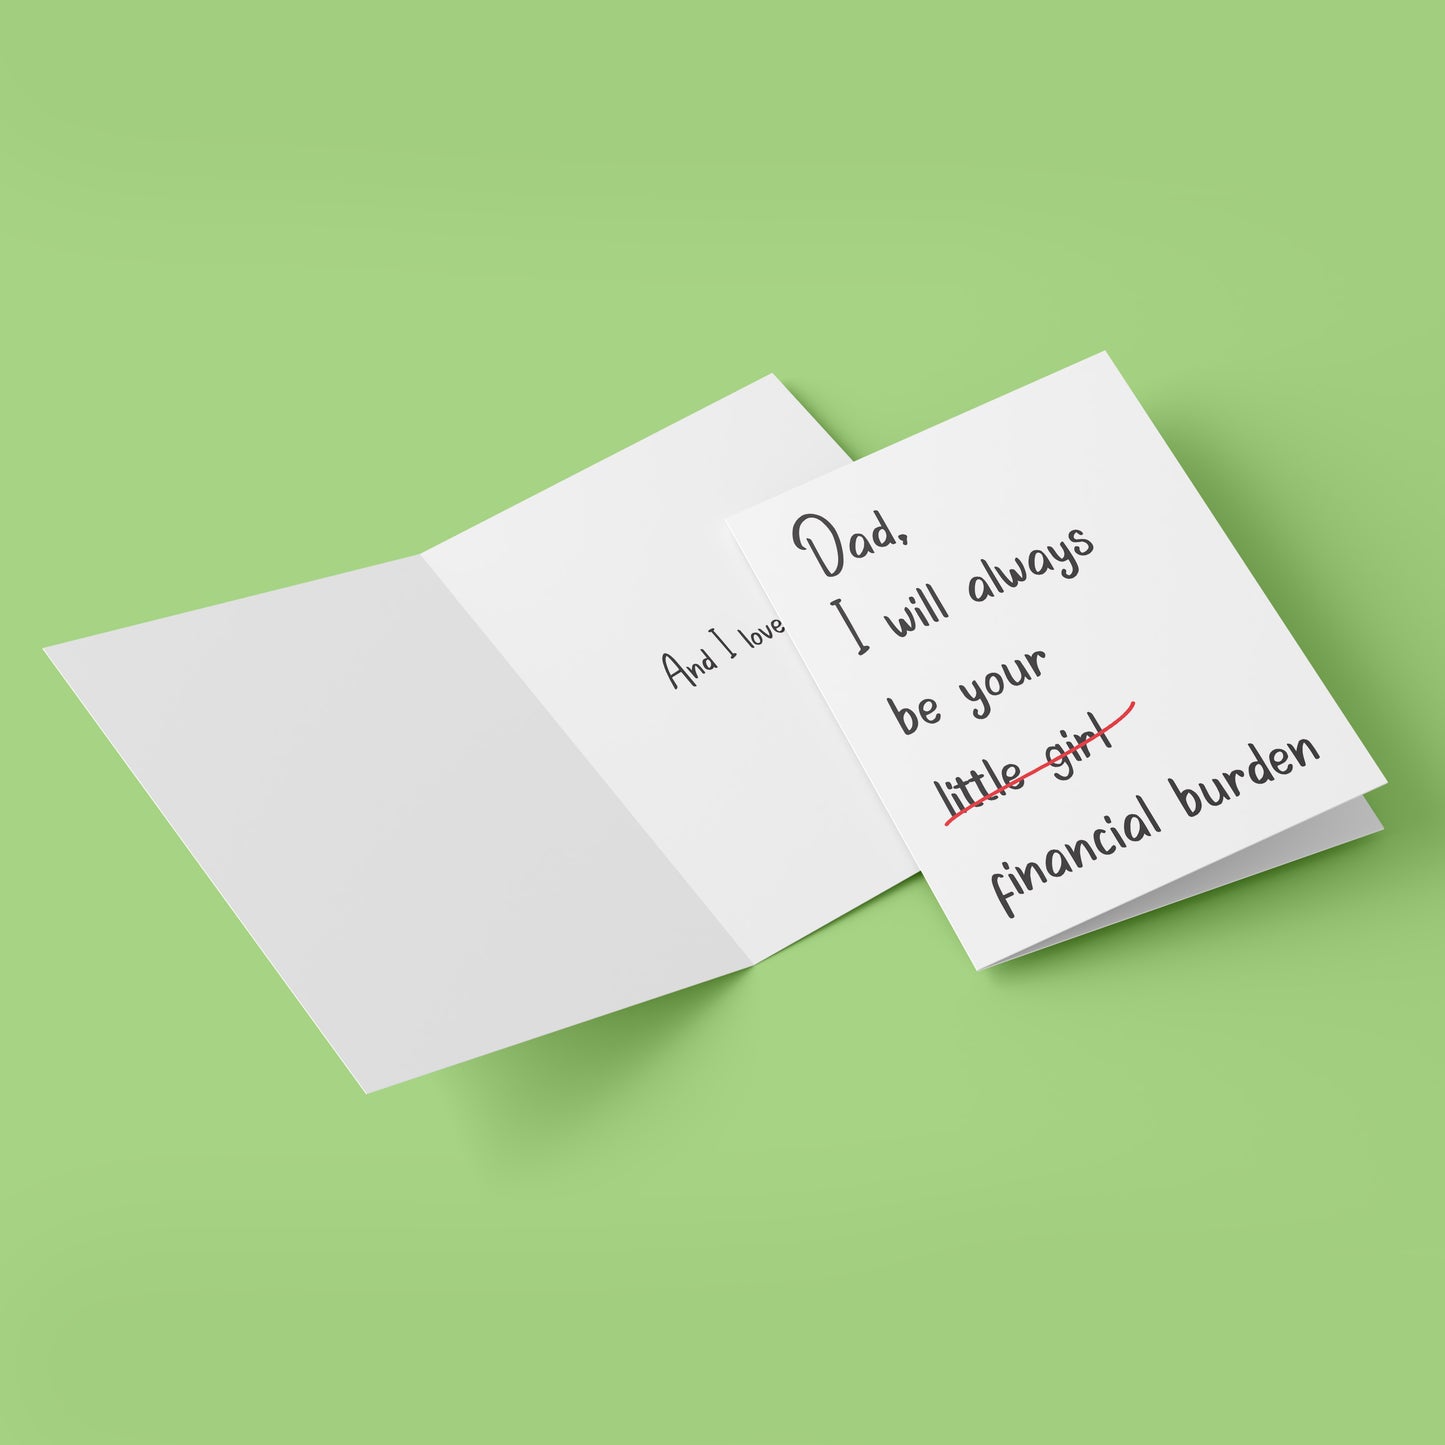 And I love
Dad,
I will always
be your
little girl
financial burden